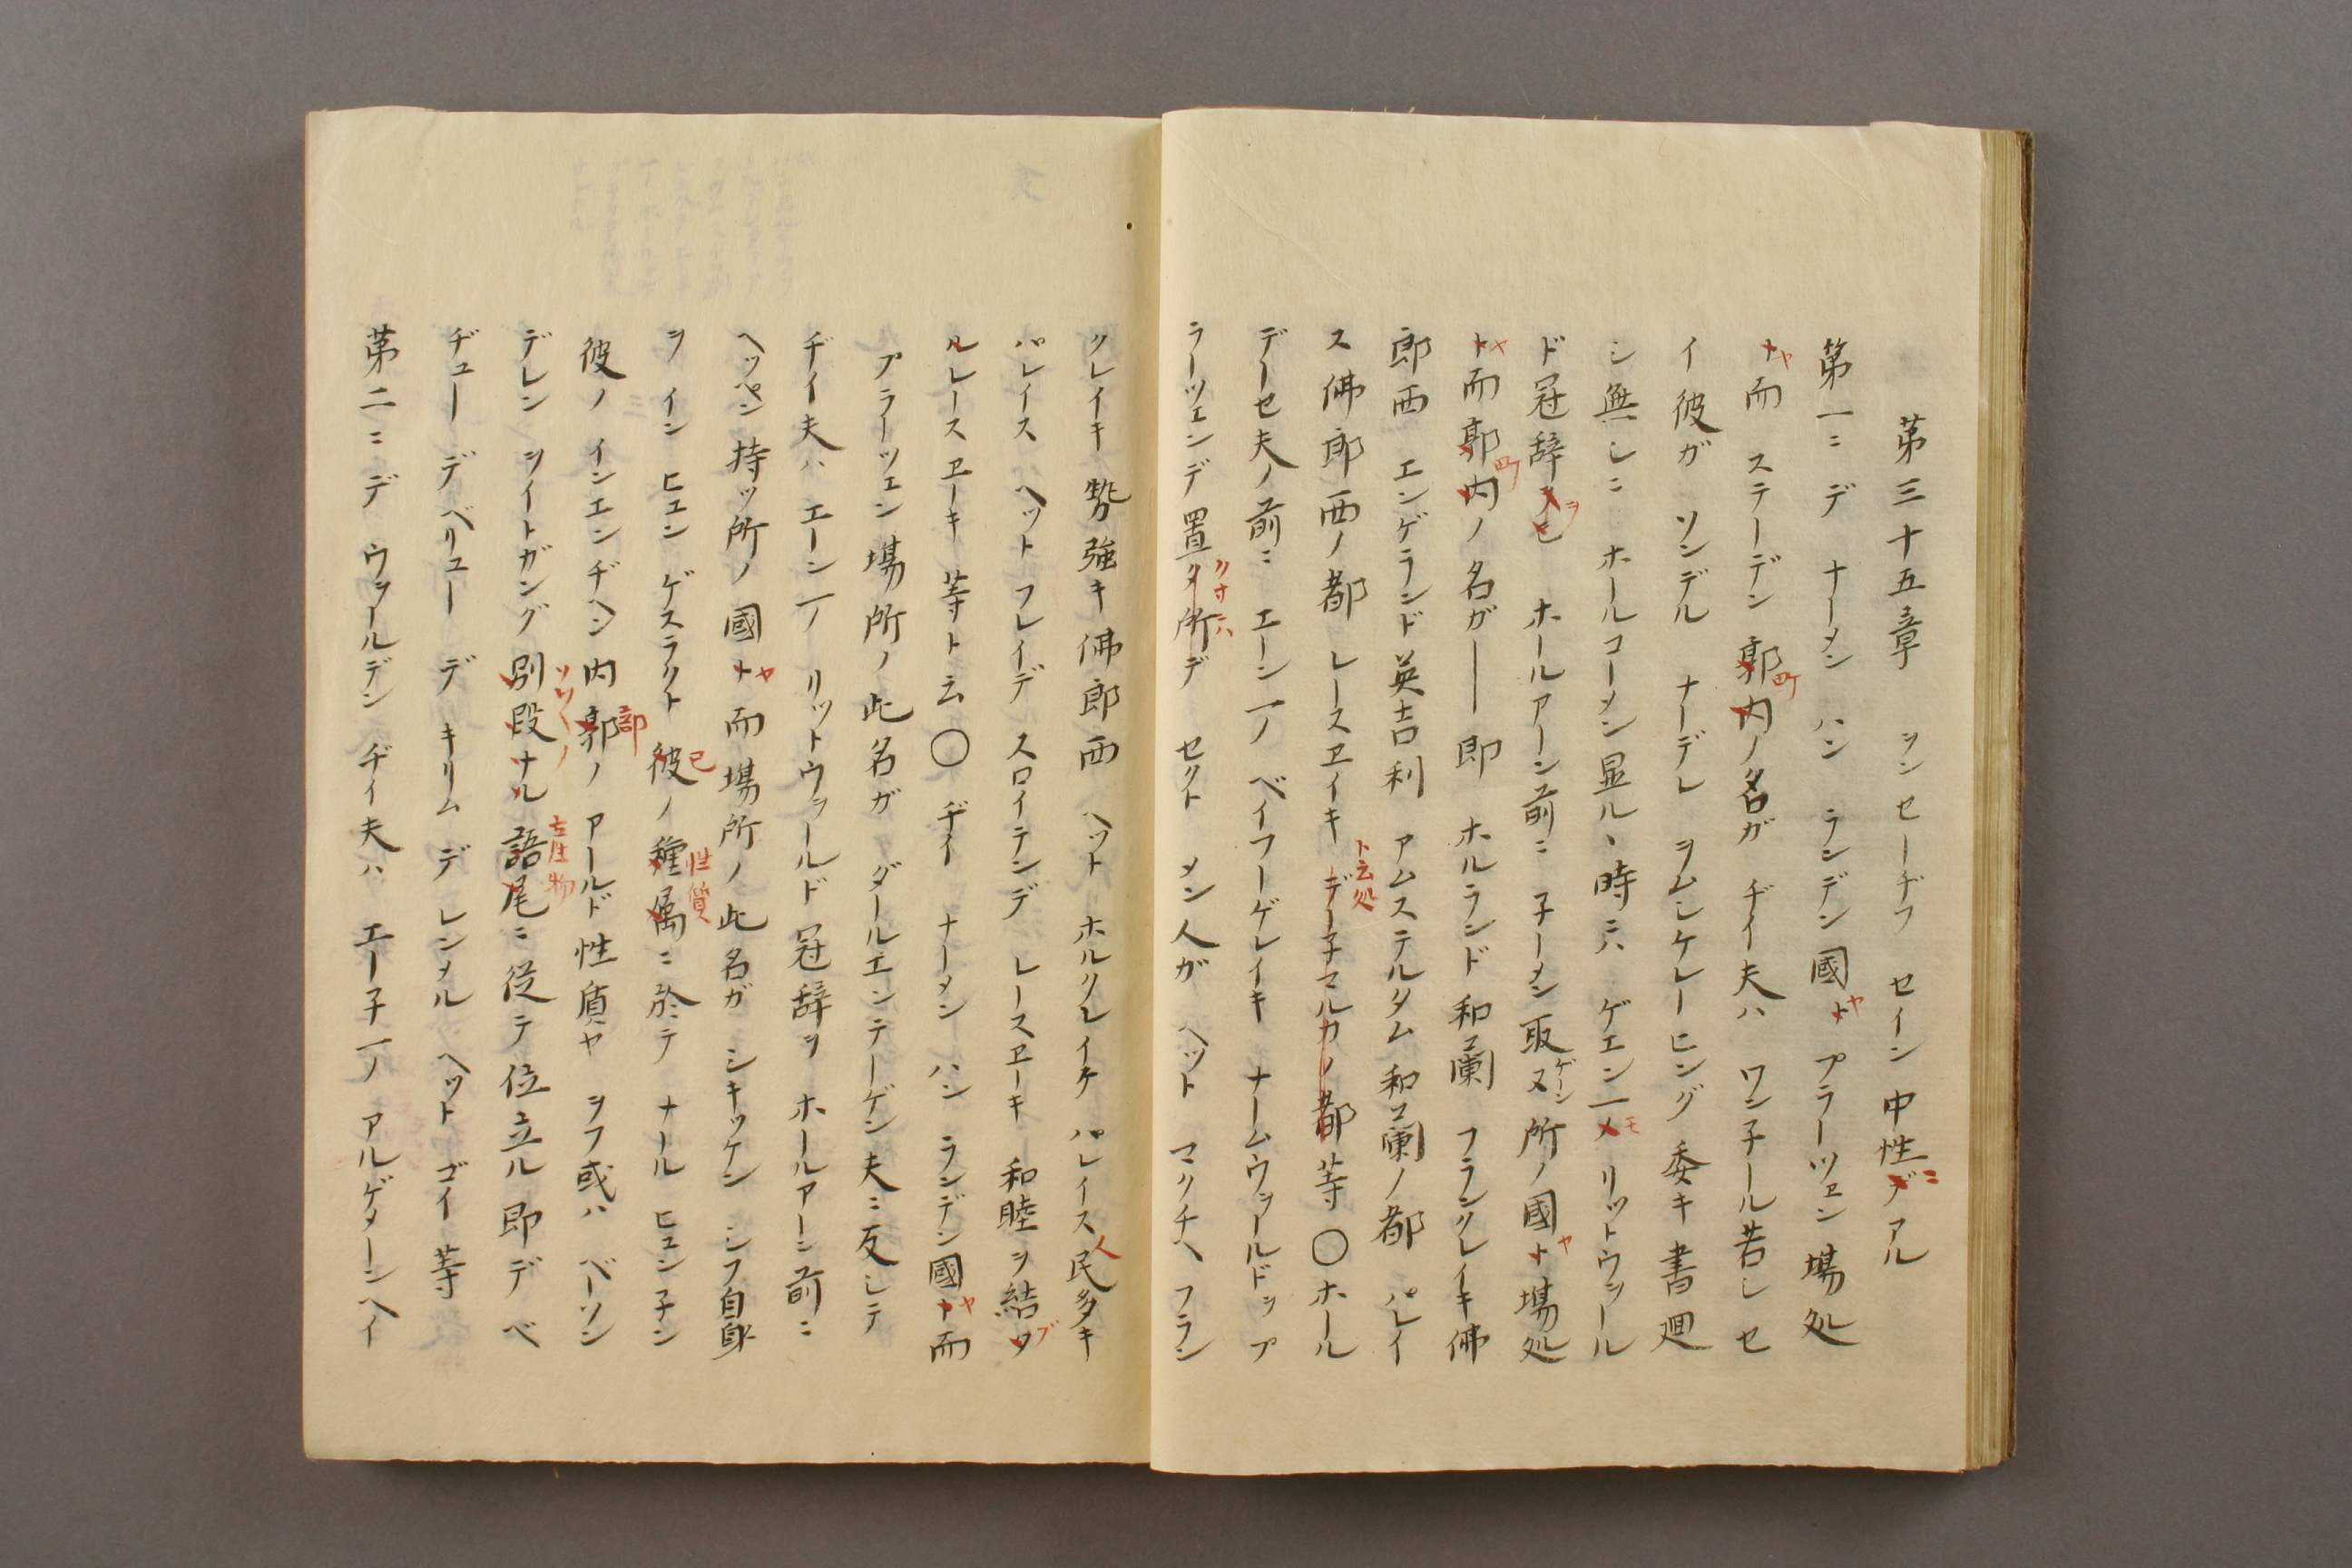 第三十五章 ヲンセーヂフ セイン 中性デアル
ニ
第一ニ デ ナーメン ハン ランデン 國ト プラーツェン 場処
ヤ
ト而 ステーデン 郭内ノ名ガ ヂイ夫ハ ワン子ール若シ セ
ヤ 町
イ彼ガ ソンデル ナーデレ ヲムシケレーヒング 委キ書廻
シ無シニ ホールコーメン 显ルヽ時ニハ ゲエン一メ リットウヲール
モ
ド冠辞ヌモ ホールアーン前ニ 子ーメン 取又所ノ國ト場処
ヲ ゲーン ヤ
ト而郭内ノ名ガ── 即 ホルランド 和蘭 フランクレイキ佛
ヤ 町
郎西 エンゲランド 英吉利 アムステルダム 和蘭ノ都 パレイ
ス佛郎西ノ都 レースヱイキ デー子マルカノ都等〇ホール
ト云処
デーセ夫ノ前ニ エーン一ノ ベイフーゲレイキ ナームウヲールドッフ
ラーツェンデ 置タ所デ セクト メン人ガ ヘット マクチヘ フラン
クレイキ 勢強キ佛郎西 ヘット ホルクレイケ パレイス 民多キ
人
パレイス ヘット フレイデ スロイテンデ レースヱーキ 和睦ヲ結タ
ブ
ルレースヱーキ 等ト云〇 ヂイ ナーメン ハン ランデン國ト而
ヤ
プラーツェン 場所ノ此名ガ ダールエンテーゲン 夫ニ反シテ
ヂイ夫ハ エーン一ノ リットウヲールド 冠辞ヲ ホールアーン前ニ
ヘッペン 持ツ所ノ國ト而場所ノ此名ガ シキッケン シフ自身
ヤ
ヲ イン ヒェン ゲスラクト 彼ノ種属ニ於テ ナール ヒェン子ン
己 性質
彼ノ インエンヂヘン 内郭ノ アールド性質ヤ ヲフ或ハ ベーソン
部
デレン ヲイトガング 別段ナル語尾ニ従テ位立ル即デベ
ヂュー デ ベリュー デ キリム デ レンメル ヘット ゴイ 等
第二ニ デ ウヲールデン ヂイ夫ハ エー子一ノ アルゲメーンヘイ